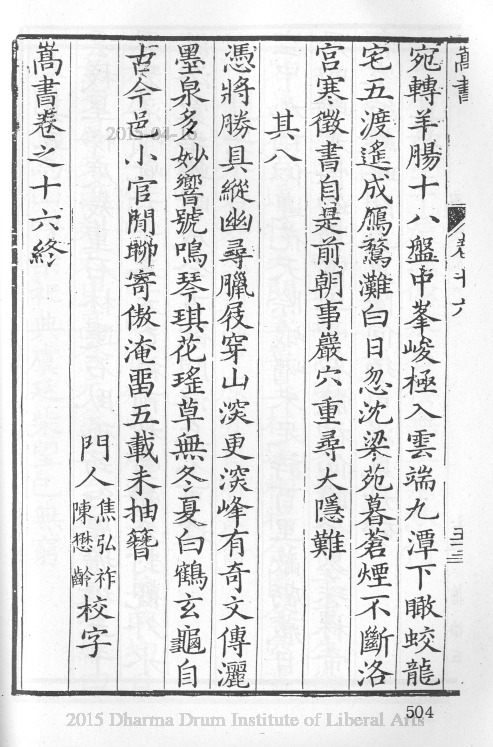 嵩書 卷十六 三十三
宛轉羊腸十八盤中峯峻極入雲端九潭下瞰蛟龍
宅五渡遙成鴈鶩灘白日忽沈梁苑暮蒼煙不斷洛
宫寒徵書自是前朝事巖穴重尋大隱難
其八
憑將勝具縱幽尋臘屐穿山深更深峰有奇文傳灑
墨泉多妙響號鳴琴琪花瑤草無冬夏白鶴玄龜自
古今邑小官閒聊寄傲淹畱五載未抽簪
門人焦弘祚陳懋齡校字
嵩書卷之十六終
504
2015 Dharma Drum Institute of Liberal Arts